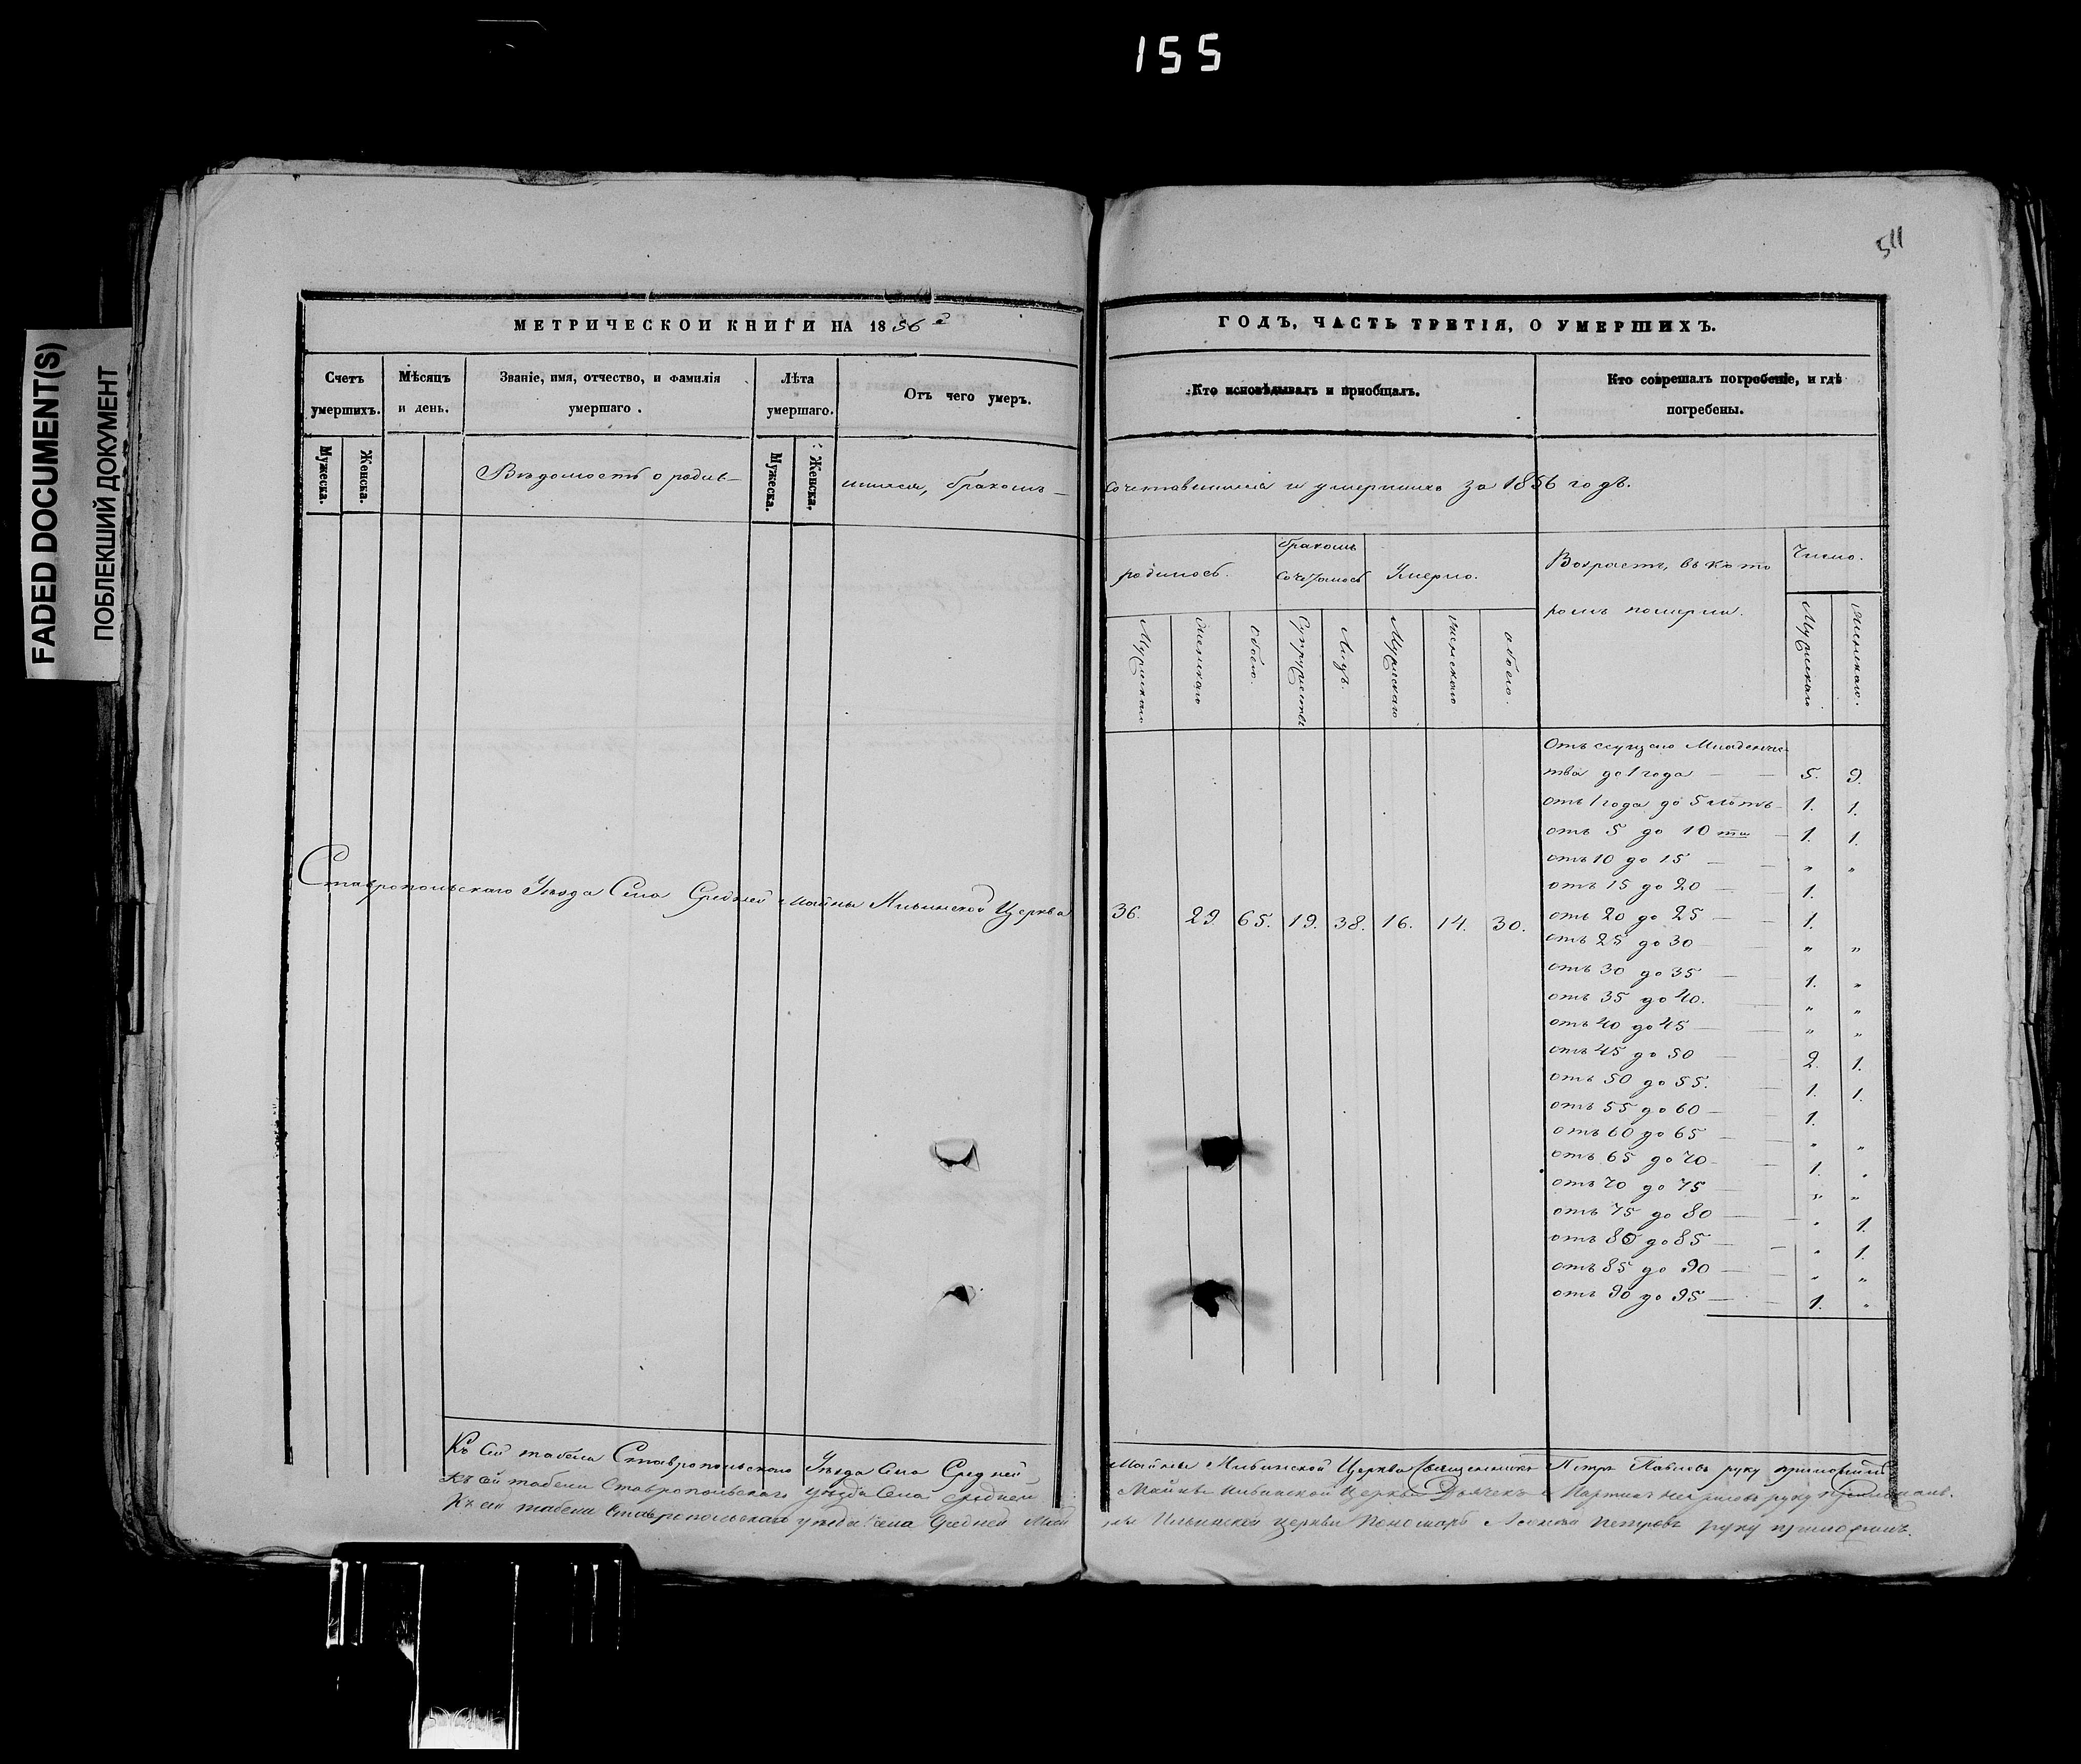 155
FADED DOCUMENT(S)
ПОБЛЕКШИЙ ДОКУМЕНТ
511
МЕТРИЧЕСКОЙ КНИГИ НА 1856 г
ГОДЪ, ЧАСТЬ ТРЕТІЯ, О УМЕРШИХЪ.
Счетъ умершихъ.
Мѣсяцъ и день.
Званіе, имя, отчество, и фамилія умершаго.
Лѣта умершаго.
Отъ чего умеръ.
Кто исповѣдывалъ и пріобщалъ.
Кто совершалъ погребеніе, и гдѣ погребены.
Мужеска.
Женска.
Мужеска.
Женска.
Вѣдомость о родив-
шихся, бракомъ-
сочетавшихся и умершихъ за 1856 годъ.
родилось.
бракомъ
сочеталось
Умерло.
Возрастъ, въ кото
ромъ померли.
Число.
Мужескаго
Женскаго
Обоего.
Супружествъ
Лицъ.
Мужескаго
Женскаго
обоего.
Мужескаго
Женскаго.
Ставропольскаго Уѣзда Села Средней Майны Ильинской Церкви
36. 29 65. 19. 38. 16. 14. 30.
Отъ сущаго Младенче
ства до 1 года — — 5. 9.
отъ 1 года до 5 лѣтъ — 1. 1.
отъ 5 до 10 ти — 1. 1.
отъ 10 до 15 — — " "
отъ 15 до 20 — — 1.
отъ 20 до 25 — — 1.
отъ 25 до 30 — — " "
отъ 30 до 35 — — 1. "
отъ 35 до 40. — " "
отъ 40 до 45 — — " "
отъ 45 до 50 — — 2. 1.
отъ 50 до 55. — 1. 1.
отъ 55 до 60 — — 1.
отъ 60 до 65 — — " "
отъ 65 до 70 — — 1. "
отъ 70 до 75 — — " "
отъ 75 до 80 — — " 1.
отъ 80 до 85 — — " 1.
отъ 85 до 90 — — " "
отъ 90 до 95 — — 1. "
Къ сей табели Ставропольскаго Уѣзда Села Средней
Майны Ильинской Церкви Священникъ Петръ Павловъ руку приложилъ
Къ сей табели Ставропольскаго уѣзда Села средней
Майны Ильинской Церкви Дьячекъ руку приложилъ.
Къ сей табели Ставропольскаго уѣзда Села Средней Май
ны Ильинской церкви Пономарь Петровъ руку приложилъ.